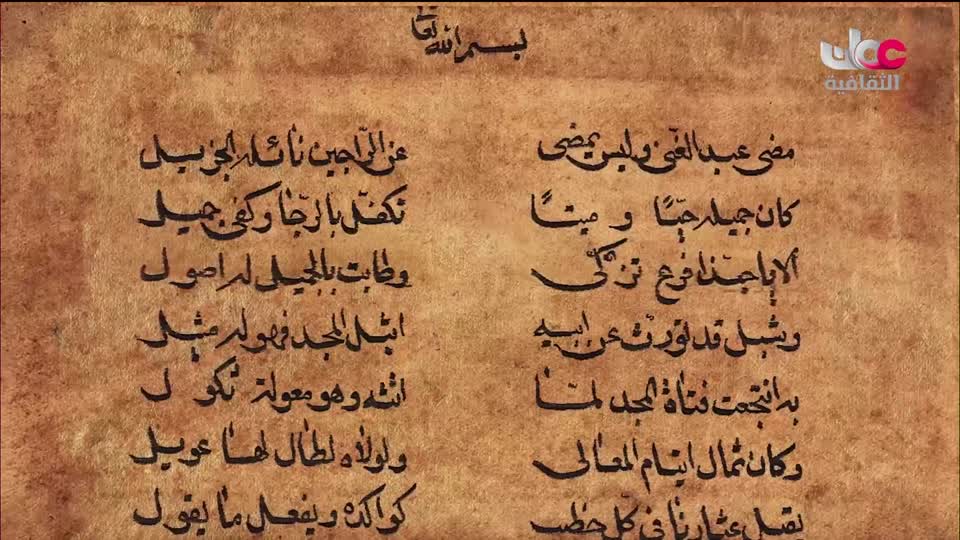 بسم الله تعالى
عمان
الثقافية
مضى عبد الغني وليس يمضي عن الراجين نائله الجزيل
كان جميله حيًا وميتًا تكفّل بالرجا وكفى جميل
ألا يا حبذا فرع تزكّى وطابت بالجميل له اصول
وشبل قد تورث عن ابيه اثيل المجد فهو له مثيل
به انتجعت فتاة المجد لمّا اتته وهو معولة ثكول
وكان ثمال ايتام المعالي ولولاه لطال لها عويل
يقيل عثارنا في كل خطب كوالده ويفعل ما يقول